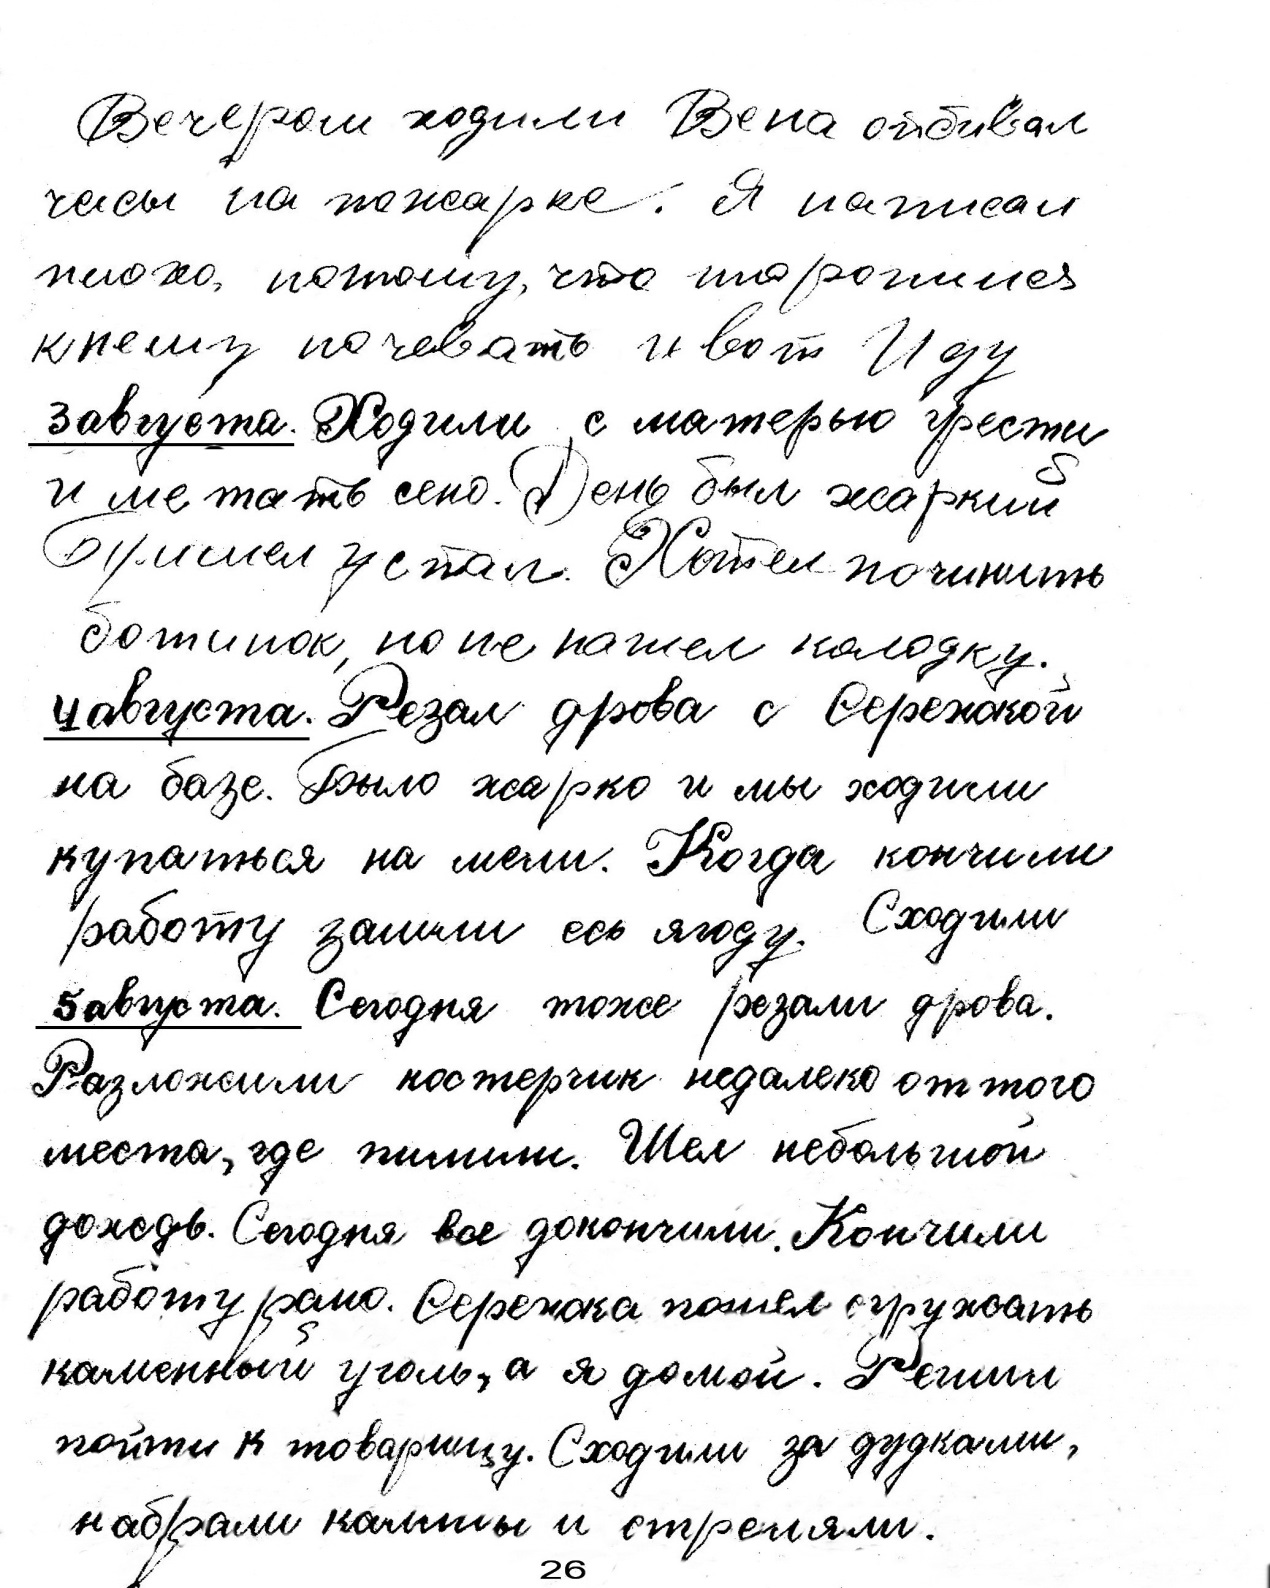 Вечером ходили Вена отбивал
часы на пожарке. Я написал
плохо, потому, что торопился
к нему ночевать и вот Иду
3 августа. Ходили с матерью грести
и метать сено. День был жаркий
Пришел устал. Хотел починить
ботинок, но не нашел колодку.
4 августа. Резал дрова с Сережкой
на базе. Было жарко и мы ходили
купаться на мели. Когда кончили
работу зашли есь ягоду. Сходили
5 августа. Сегодня тоже резали дрова.
Разложили костерчик недалеко от того
места, где пилили. Шел небольшой
дождь. Сегодня все докончили. Кончили
работу рано. Сережка пошел сгружать
каменный уголь, а я домой. Решил
пойти к товарищу. Сходили за дудками,
набрали калины и стреляли.
26